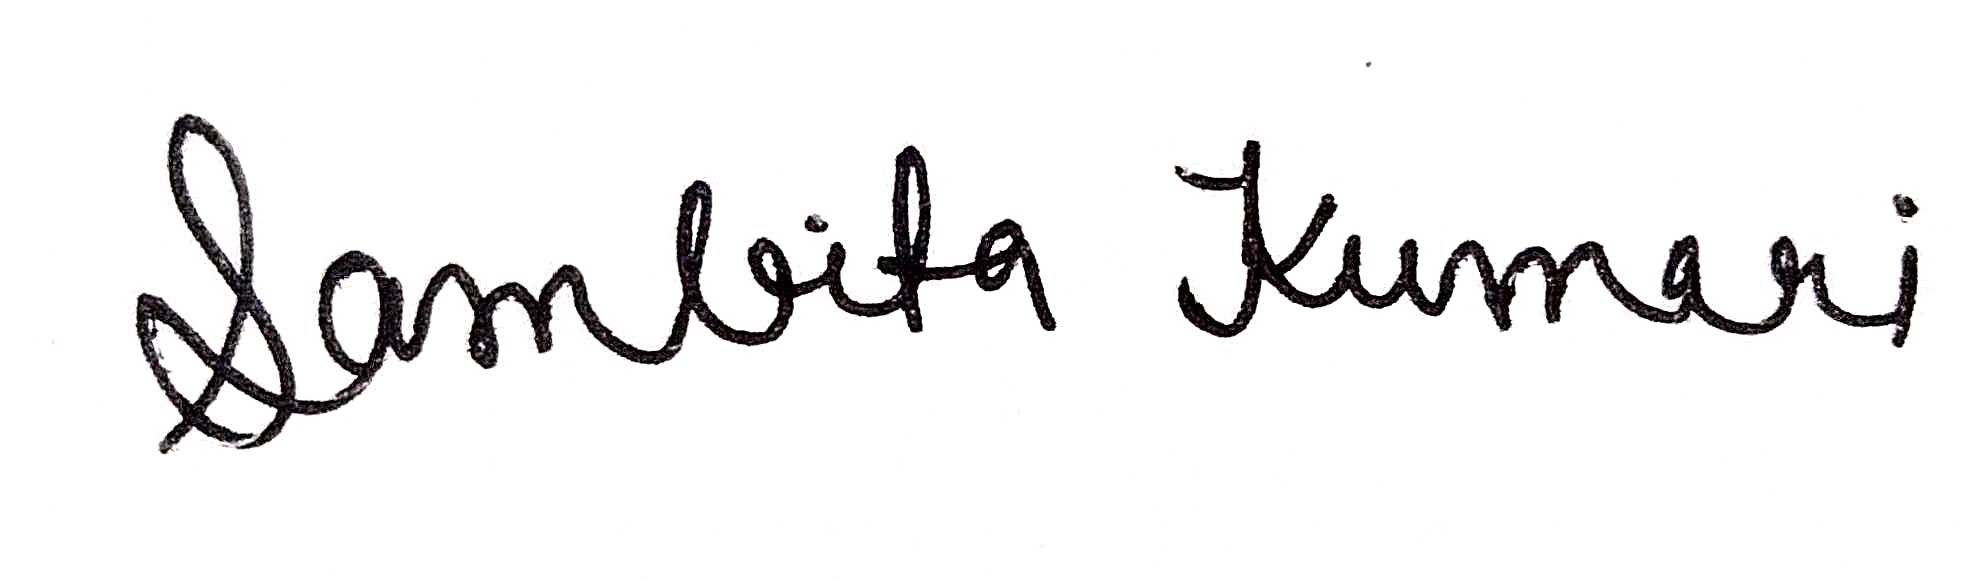 Sambita Kumari